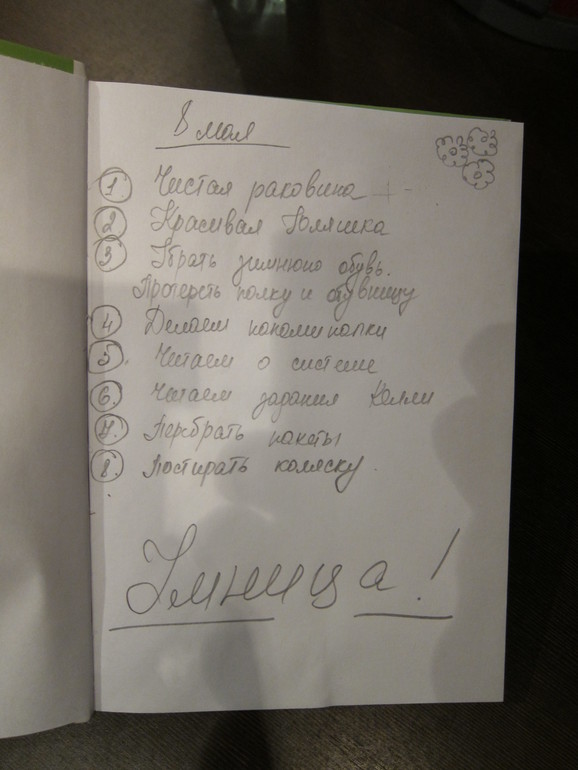 8 мая
1 Чистая раковина + -
2 Красивая Поляшка
3 Убрать зимнюю обувь.
Протереть полку и обувницу
4 Делаем напоминалки
5. Читаем о системе
6. Читаем задания Келли
7. Перебрать пакеты
8. Постирать коляску.
Умница!